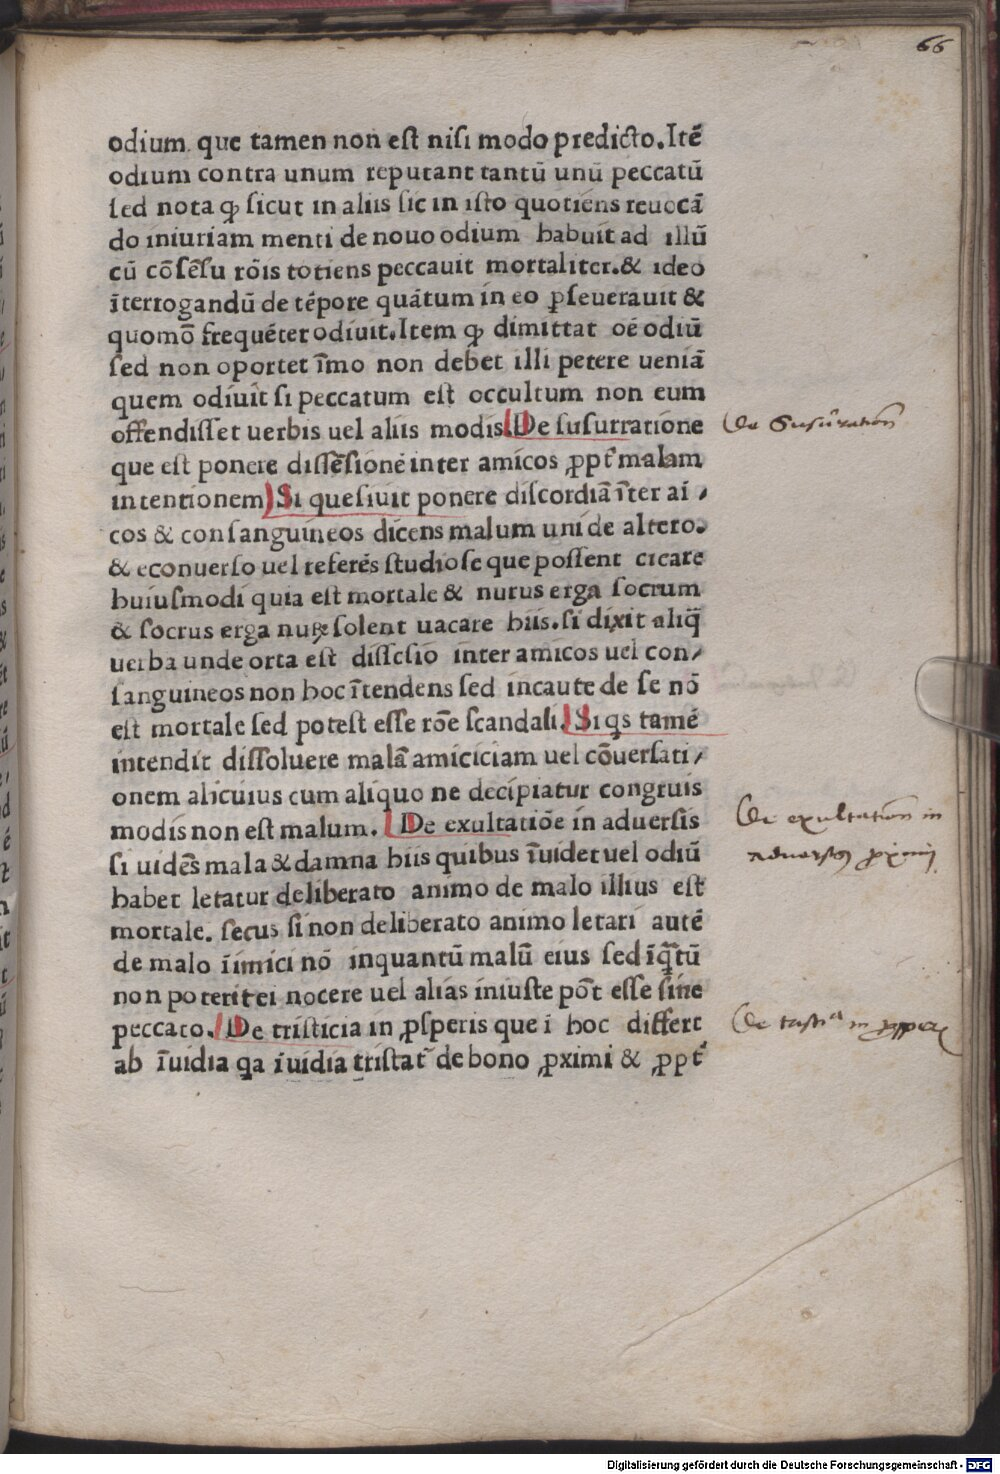 66
odium que tamen non est nisi modo predicto. Itē
odium contra unum reputant tantū unū peccatū
sed nota ꝙ sicut in aliis sic in isto quotiens reuocā
do iniuriam menti de nouo odium habuit ad illū
cū cōsēsu rōis totiens peccauit mortaliter. & ideo
īterrogandū de tēpore quātum in eo ꝑseuerauit &
quomō frequēter odiuit. Item ꝙ dimittat oē odiū
sed non oportet īmo non debet illi petere ueniā
quem odiuit si peccatum est occultum non eum
offendisset uerbis uel aliis modis. De susurratione
De Susurration
que est ponere dissēsionē inter amicos ꝓpt̄ malam
intentionem Si quesiuit ponere discordiā īter ai/
cos & consanguineos dicens malum uni de altero.
& econuerso uel referēs studiose que possent cicare
huiusmodi quia est mortale & nurus erga socrum
& socrus erga nuꝝ solent uacare hiis. si dixit aliq̄
uerba unde orta est dissēsio inter amicos uel con/
sanguineos non hoc ītendens sed incaute de se nō
est mortale sed potest esse rōe scandali. Si qs tamē
intendit dissoluere malā amiciciam uel cōuersati/
onem alicuius cum aliquo ne decipiatur congruis
modis non est malum. De exultatiōe in aduersis
De exultation in
aduersis proximi
si uidēs mala & damna hiis quibus īuidet uel odiū
habet letatur deliberato animo de malo illius est
mortale. secus si non deliberato animo letari autē
de malo īimici nō inquantū malū eius sed īq̄tū
non poterit ei nocere uel alias iniuste pōt esse sine
peccato. De tristicia in ꝓsperis que i hoc differt
De tristia in
ab īuidia qa īuidia tristat̄ de bono ꝓximi & ꝓpt̄
Digitalisierung gefördert durch die Deutsche Forschungsgemeinschaft - DFG